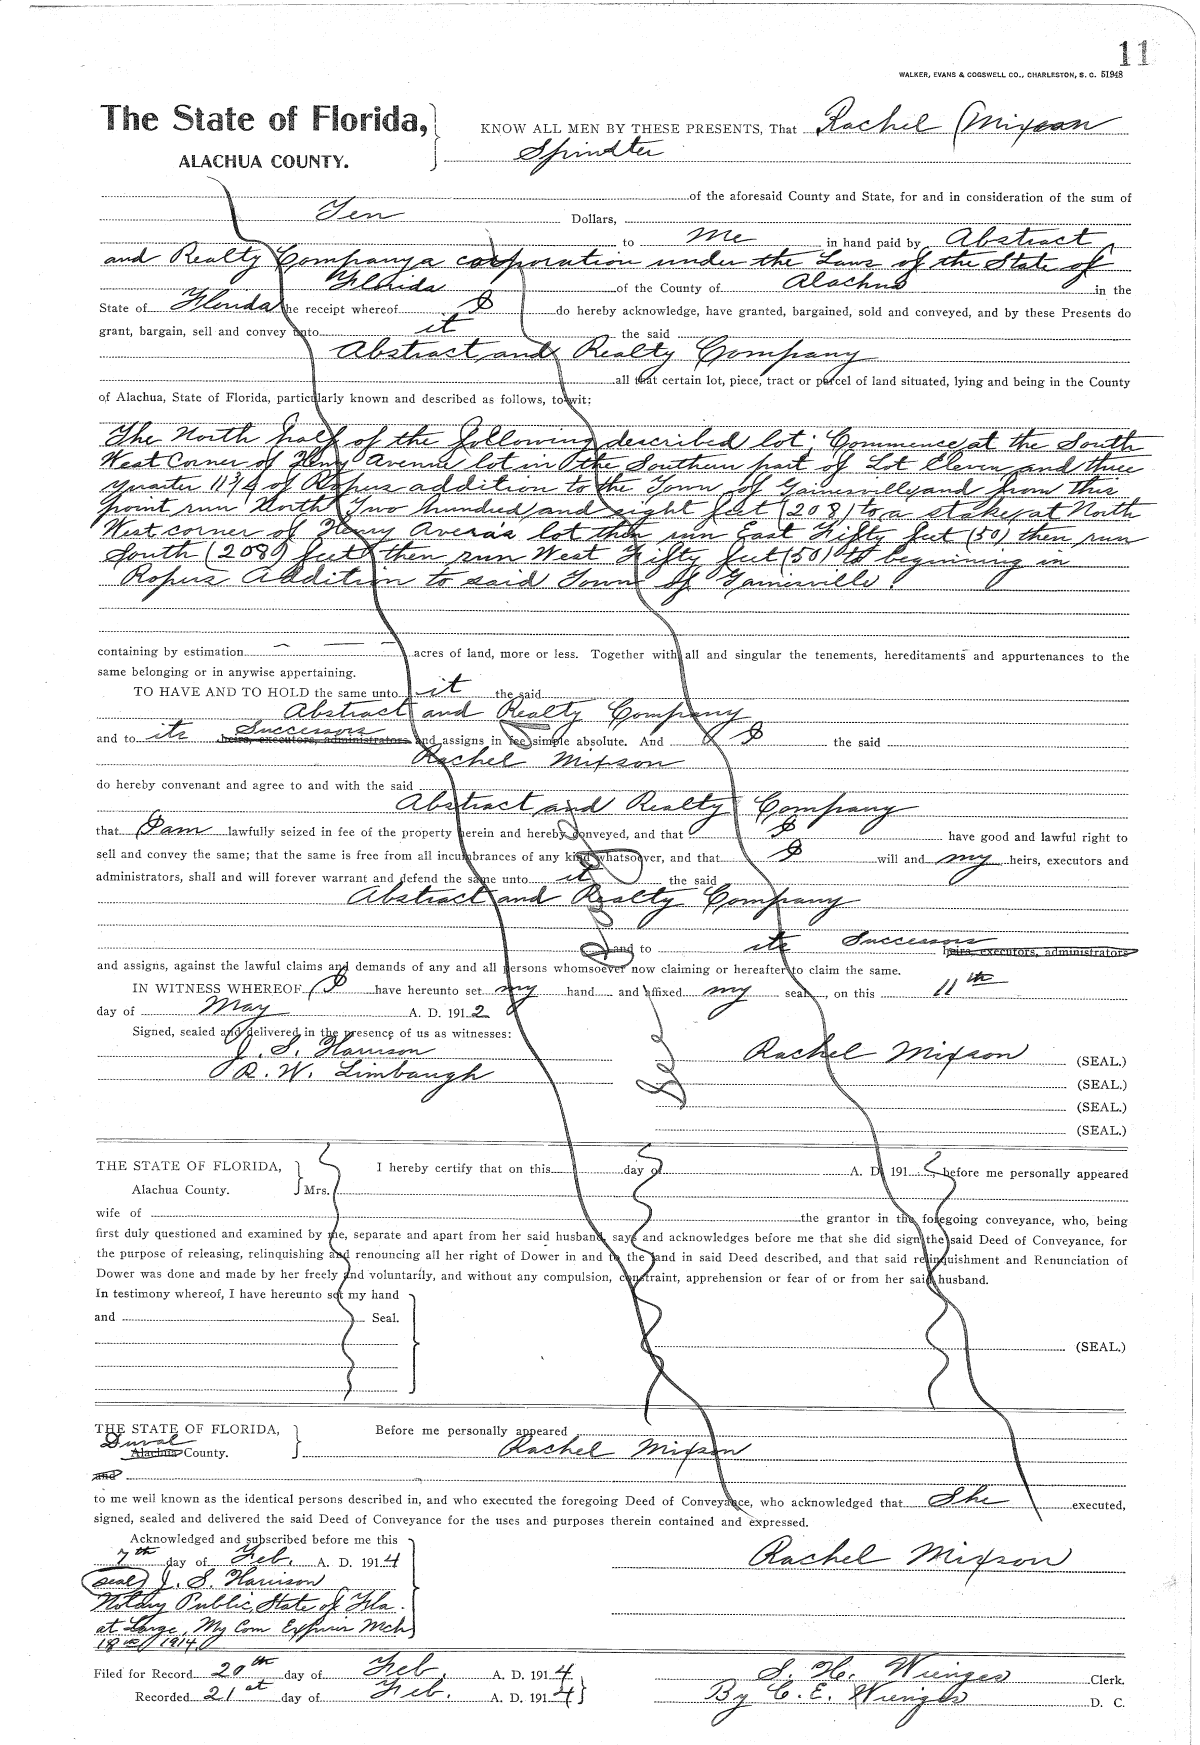 11
WALKER, EVANS & COGSWELL CO., CHARLESTON, S. C. 51948
The State of Florida,
ALACHUA COUNTY.
KNOW ALL MEN BY THESE PRESENTS, That Rachel Mixson
Spinster
of the aforesaid County and State, for and in consideration of the sum of
Ten Dollars,
to me in hand paid by Abstract
and Realty Company a corporation under the Laws of the State of
Florida of the County of Alachua in the
State of Florida the receipt whereof I do hereby acknowledge, have granted, bargained, sold and conveyed, and by these Presents do
grant, bargain, sell and convey unto it the said
Abstract and Realty Company
all that certain lot, piece, tract or parcel of land situated, lying and being in the County
of Alachua, State of Florida, particularly known and described as follows, to-wit:
The North half of the following described lot: Commence at the South
West Corner of Henry Avenue lot in the Southern part of Lot Eleven and three
quarter 11 3/4 of Ropers addition to the Town of Gainesville and from this
point run North Two hundred and eight feet (208) to a stake at North
West corner of Henry Avera's lot then run East Fifty feet (50) then run
South (208) feet then run West Fifty feet (50) to beginning in
Ropers Addition to said Town of Gainesville.
containing by estimation acres of land, more or less. Together with all and singular the tenements, hereditaments and appurtenances to the
same belonging or in anywise appertaining.
TO HAVE AND TO HOLD the same unto it the said
Abstract and Realty Company
and to its Successors heirs, executors, administrators and assigns in fee simple absolute. And I the said
Rachel Mixson
do hereby convenant and agree to and with the said
Abstract and Realty Company
that I am lawfully seized in fee of the property herein and hereby conveyed, and that I have good and lawful right to
sell and convey the same; that the same is free from all incumbrances of any kind whatsoever, and that I will and my heirs, executors and
administrators, shall and will forever warrant and defend the same unto it the said
Abstract and Realty Company
and to its Successors heirs, executors, administrators
and assigns, against the lawful claims and demands of any and all persons whomsoever now claiming or hereafter to claim the same.
IN WITNESS WHEREOF I have hereunto set my hand and affixed my seal, on this 11th
day of May A. D. 1912
Signed, sealed and delivered in the presence of us as witnesses:
J. S. Harrison
R. W. Limbaugh
Rachel Mixson (SEAL.)
(SEAL.)
(SEAL.)
(SEAL.)
See Page
THE STATE OF FLORIDA,
Alachua County.
I hereby certify that on this day of A. D. 191 , before me personally appeared
Mrs.
wife of the grantor in the foregoing conveyance, who, being
first duly questioned and examined by me, separate and apart from her said husband, says and acknowledges before me that she did sign the said Deed of Conveyance, for
the purpose of releasing, relinquishing and renouncing all her right of Dower in and to the land in said Deed described, and that said relinquishment and Renunciation of
Dower was done and made by her freely and voluntarily, and without any compulsion, constraint, apprehension or fear of or from her said husband.
In testimony whereof, I have hereunto set my hand
and Seal.
(SEAL.)
THE STATE OF FLORIDA,
Duval
Alachua County.
Before me personally appeared
Rachel Mixson
and
to me well known as the identical persons described in, and who executed the foregoing Deed of Conveyance, who acknowledged that She executed,
signed, sealed and delivered the said Deed of Conveyance for the uses and purposes therein contained and expressed.
Acknowledged and subscribed before me this
7th day of Feb. A. D. 1914
(seal) J. S. Harrison
Notary Public, State of Fla.
at Large, My Com Expires Mch
18 1914
Rachel Mixson
Filed for Record 20th day of Feb. A. D. 1914
Recorded 21st day of Feb. A. D. 1914
S. H. Wienges Clerk.
By C. E. Wienges D. C.